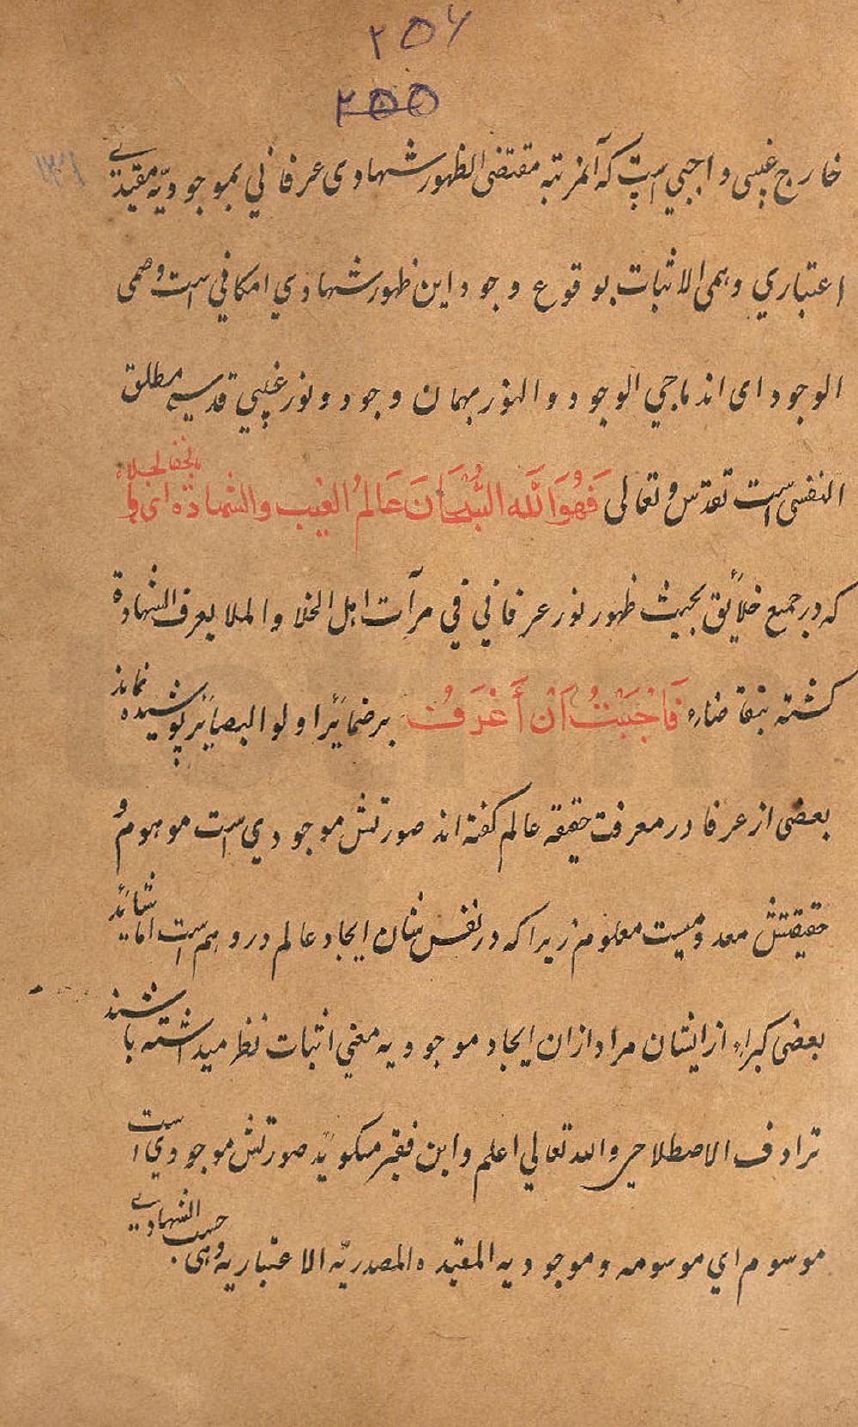 ۲۵۶
۲۵۵
خارج غیبی واجبی است که آنمرتبه مقتضی الظهور شهادی عرفانی بموجودیّه مقیدیے
اعتباری وهمی الاثبات بوقوع وجود این ظهور شهادی امکانی است وهمی
الوجود ای اندماجی الوجود والنور بهمان وجود ونور غیبی قدسیے مطلق
النفسی است تقدّس وتعالی فَهُوَ اللّٰه السُّبحَانَ عَالمُ الغیب والشهادة ای
که در جمیع خلائق بحیث ظهور نور عرفانی فی مرآت اهل الخلا والملا بعرف الشهادة
کشته بتقاضاء فَاَحْبَبْتُ اَنْ أُعْرَفُ بر ضمائر اولو البصائر پوشیده نماند
بعضی از عرفا در معرفت حقیقه عالم کفته اند صورتش موجودی است موهوم و
حقیقتش معدومیست معلوم زیرا که در نفس شان ایجاد عالم در وهم است اما شائد
بعضی کبراء از ایشان مراد ازان ایجاد موجودیه معنی اثبات نظر میداشته باشند
ترادف الاصطلاحی والله تعالی اعلم واین فقیر میکوید صورتش موجودی است
موسوم ای موسومه وموجودیه المقیده المصدریّه الاعتباریه وهی حسب الشهادیے